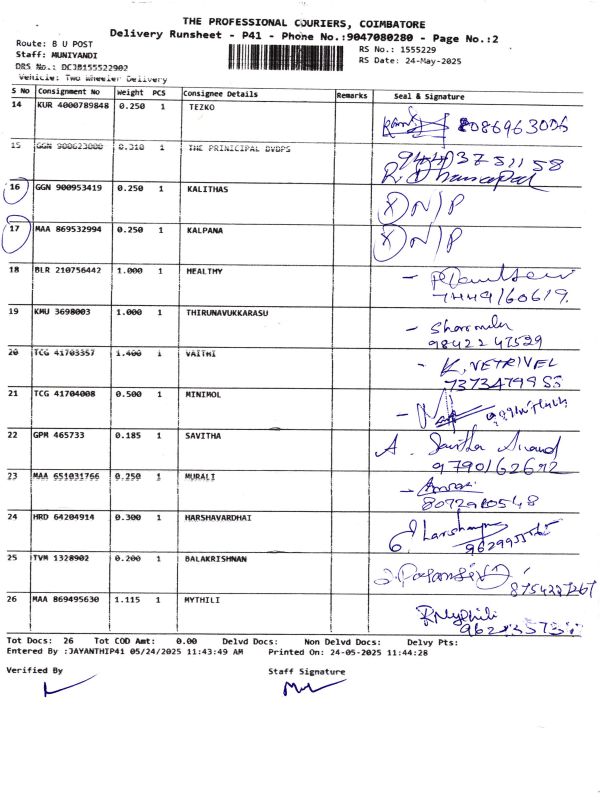 THE PROFESSIONAL COURIERS, COIMBATORE
Delivery Runsheet - P41 - Phone No.:9047080280 - Page No.:2
Route: B U POST
Staff: MUNIYANDI
RS No.: 1555229
DRS No.: DC3B155522902
RS Date: 24-May-2025
Vehicle: Two Wheeler Delivery
S No Consignment No Weight PCS Consignee Details Remarks Seal & Signature
14 KUR 4000789848 0.250 1 TEZKO 8086963006
15 GGN 900623000 0.310 1 THE PRINICIPAL DVDPS 94403751158
R. Dhanapal
16 GGN 900953419 0.250 1 KALITHAS X N/P
17 MAA 869532994 0.250 1 KALPANA X N/P
18 BLR 210756442 1.000 1 HEALTHY
7449160619.
19 KMU 3698003 1.000 1 THIRUNAVUKKARASU - Sharmila
9842247529
20 TCG 41703357 1.400 1 VAITHI - K. VETRIVEL
7373479955
21 TCG 41704008 0.500 1 MINIMOL
22 GPM 465733 0.185 1 SAVITHA A. Savitha Anand
9790162692
23 MAA 651031766 0.250 1 MURALI
8072980548
24 HRD 64204914 0.300 1 HARSHAVARDHAI
25 TVM 1328902 0.200 1 BALAKRISHNAN
8754227267
26 MAA 869495630 1.115 1 MYTHILI R Mythili
Tot Docs: 26 Tot COD Amt: 0.00 Delvd Docs: Non Delvd Docs: Delvy Pts:
Entered By :JAYANTHIP41 05/24/2025 11:43:49 AM Printed On: 24-05-2025 11:44:28
Verified By Staff Signature